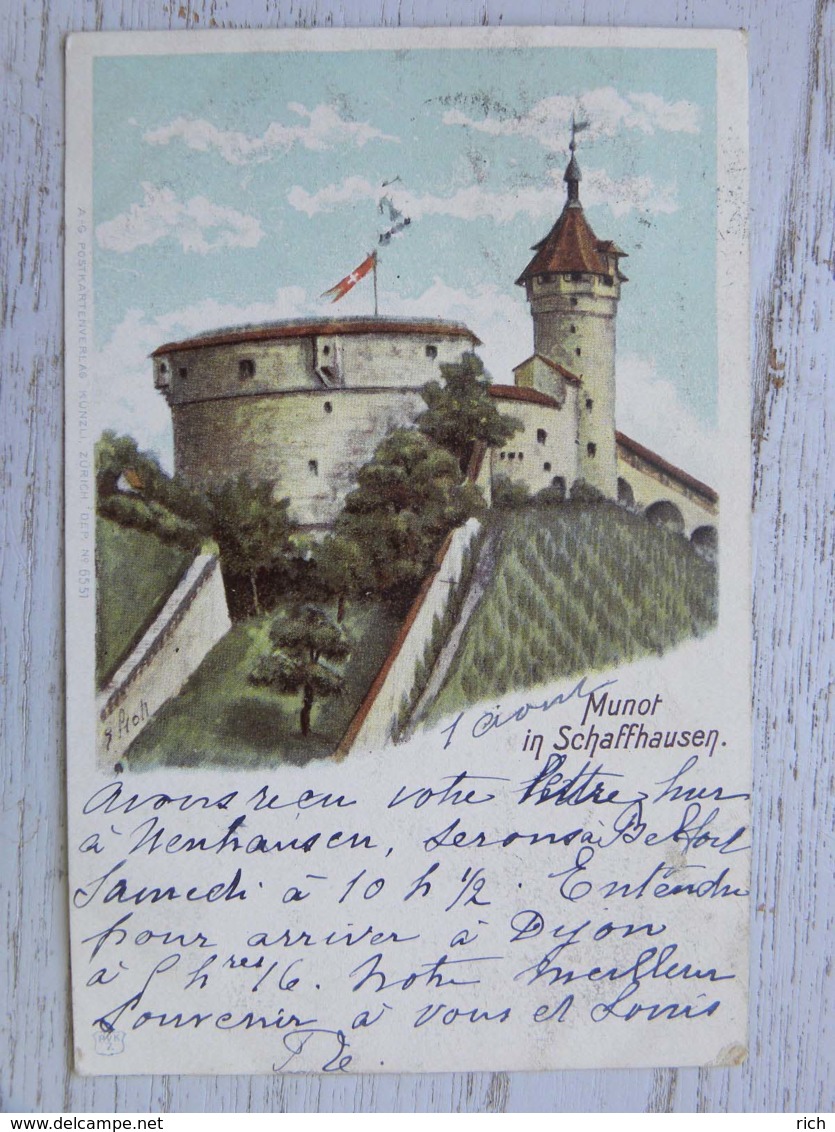 A.-G. POSTKARTENVERLAG KÜNZLI, ZÜRICH, DEP. No 6551
1 août
Munot
in Schaffhausen.
Avons recu votre lettre hier
à Neuhausen, serons à Belfort
Samedi à 10 h 1/2. Entendu
pour arriver à Dyon
à 5 hres 16. Notre meilleur
Souvenir à vous et Louis
delcampe.net
rich